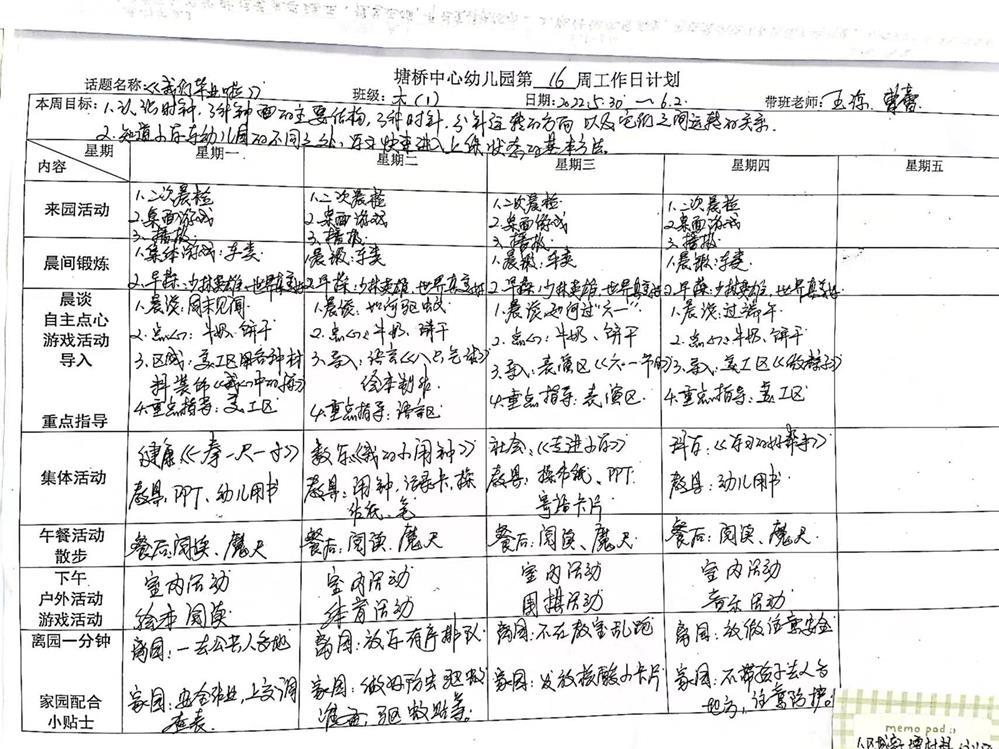 塘桥中心幼儿园第 16 周工作日计划
话题名称《我们毕业啦》 班级:大(1) 日期:2022.5.30 — 6.2. 带班老师:
本周目标:1.认识时钟,了解钟面的主要结构,了解时针、分针运转的方向以及它们之间运转的关系.
2.知道小学与幼儿园的不同之处,进入上课状态的基本方法。
星期 内容 星期一 星期二 星期三 星期四 星期五
来园活动
1.二次晨检 1.二次晨检 1.二次晨检 1.二次晨检
2.桌面游戏 2.桌面游戏 2.桌面游戏 2.桌面游戏
3.播报 3.播报 3.播报 3.播报
晨间锻炼
1.集体游戏:车类 1.晨锻:车类 1.晨锻:车类 1.晨锻:车类
2.早操:少林英雄、世界真美好 2.早操:少林英雄、世界真美好 2.早操:少林英雄、世界真美好 2.早操:少林英雄、世界真美好
晨谈
自主点心
游戏活动
导入
重点指导
1.晨谈:周末见闻 1.晨谈:如何驱蚊 1.晨谈:如何过六一 1.晨谈:过端午
2.点心:牛奶、饼干 2.点心:牛奶、饼干 2.点心:牛奶、饼干 2.点心:牛奶、饼干
3.区域:美工区用各种材 3.导入:语言 3.导入:表演区 3.导入:美工区
料装饰 绘本制作
4.重点指导:美工区 4.重点指导:语言区 4.重点指导:表演区 4.重点指导:美工区
集体活动
健康《一拳一尺一寸》 数学《我的小闹钟》 社会:《走进小学》 科学:
教具:PPT、幼儿用书 教具:闹钟、记录卡、操 教具:操作纸、PPT 教具:幼儿用书
作纸、笔 寄语卡片
午餐活动
散步
餐后:阅读、魔尺 餐后:阅读、魔尺 餐后:阅读、魔尺 餐后:阅读、魔尺
下午
户外活动
游戏活动
室内活动 室内活动 室内活动 室内活动
绘本阅读 体育活动 围棋活动 音乐活动
离园一分钟
离园:一去公共场地 离园:放学有序排队 离园:不在教室乱跑 离园:放假注意安全
家园配合
小贴士
家园:安全作业,上交调 家园:做好防虫驱蚊 家园:发放核酸小卡片 家园:不带孩子去人多
查表 准备,驱蚊贴等。 地方,注意防护。
memo pad